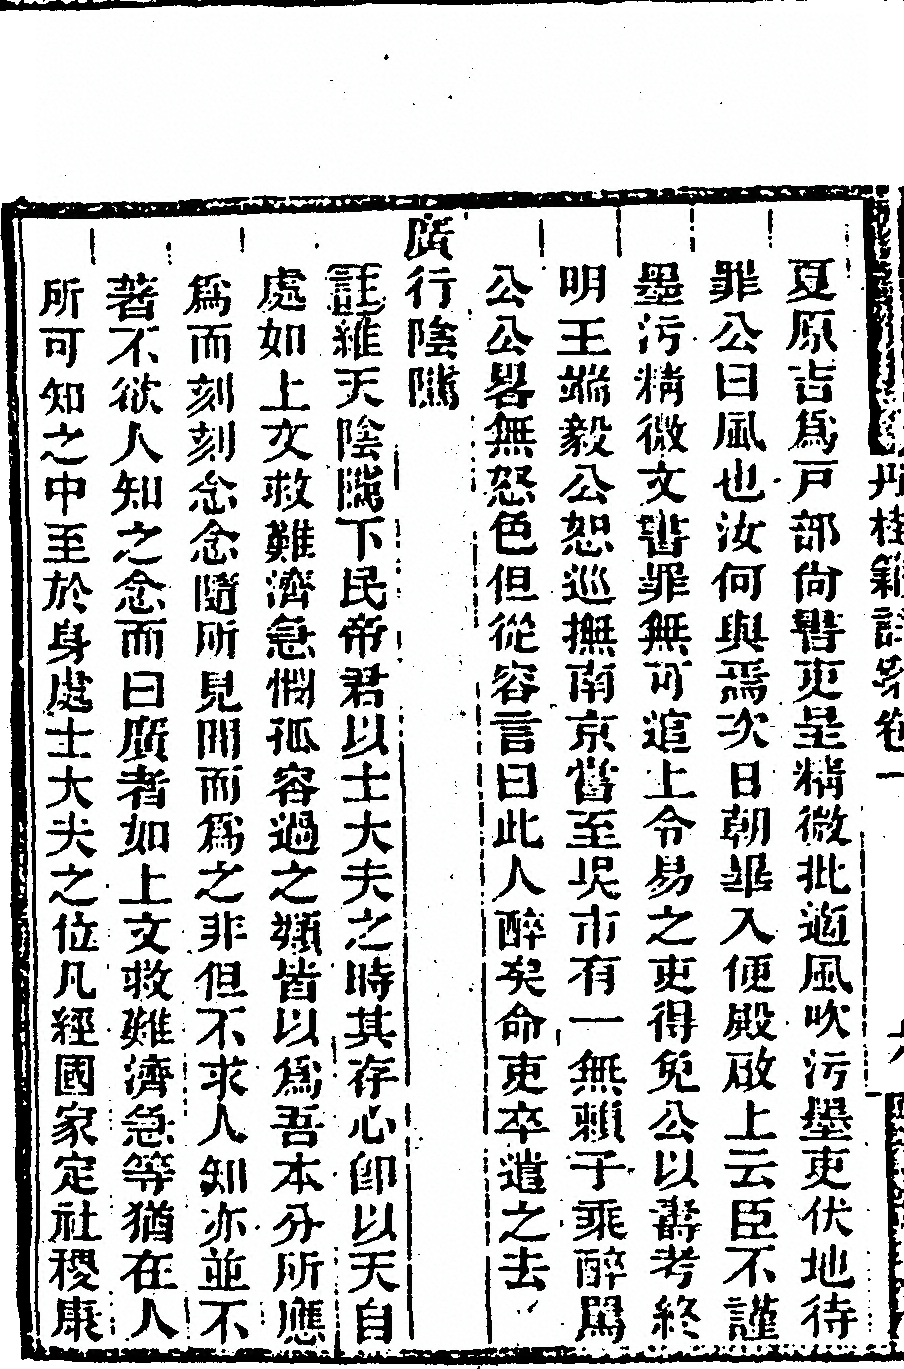 丹桂籍註案卷一
夏原吉爲戸部尚書吏呈精微批適風吹污墨吏伏地待
罪公曰風也汝何與焉次日朝畢入便殿啟上云臣不謹
墨污精微文書罪無可逭上令易之吏得免公以壽考終
明王端毅公恕巡撫南京嘗至吳市有一無賴子乘醉罵
公公畧無怒色但從容言曰此人醉矣命吏卒遣之去
廣行陰隲
註維天陰隲下民帝君以士大夫之時其存心卽以天自
處如上文救難濟急憫孤容過之類皆以爲吾本分所應
爲而刻刻念念隨所見聞而爲之非但不求人知亦並不
著不欲人知之念而曰廣者如上文救難濟急等猶在人
所可知之中至於身處士大夫之位凡經國家定社稷康